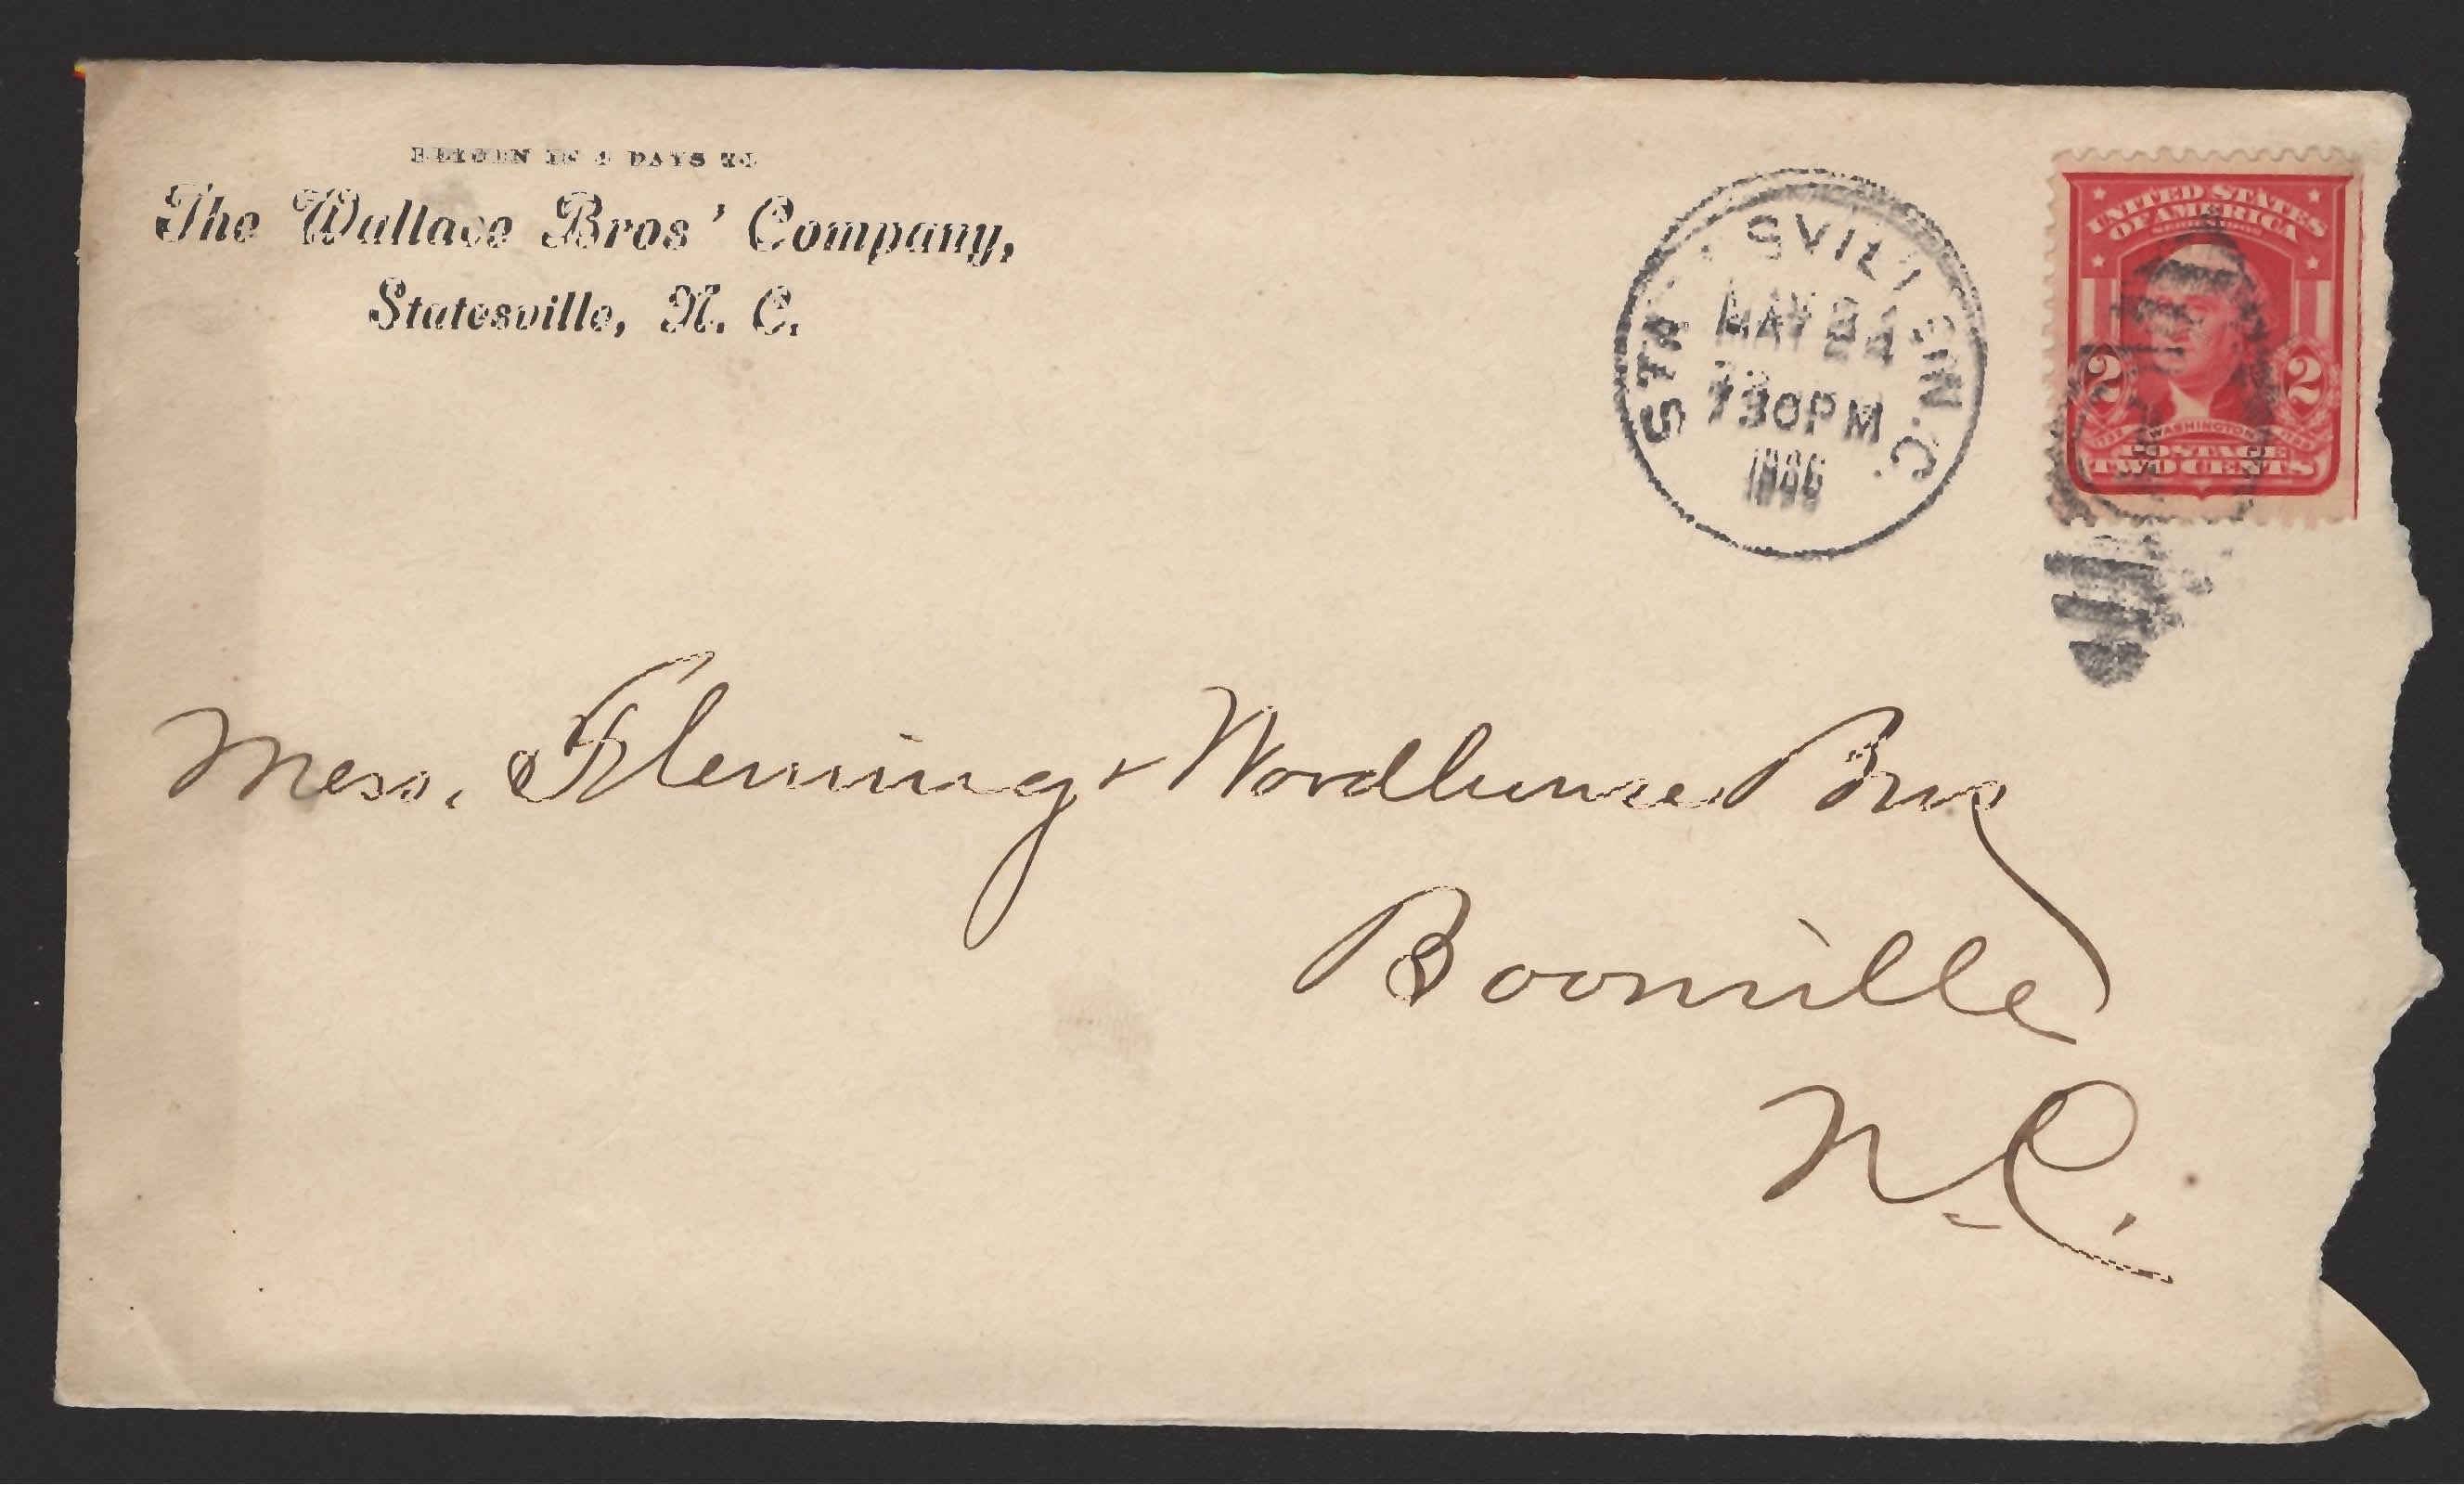 RETURN IN 5 DAYS TO
The Wallace Bros' Company,
Statesville, N. C.
STATESVILLE, N.C.
MAY 24
730PM
1906
UNITED STATES
OF AMERICA
SERIES 1902
2 2
1732 WASHINGTON 1799
POSTAGE
TWO CENTS
Mess. Fleming & Woodhouse Bros
Boonville
N.C.